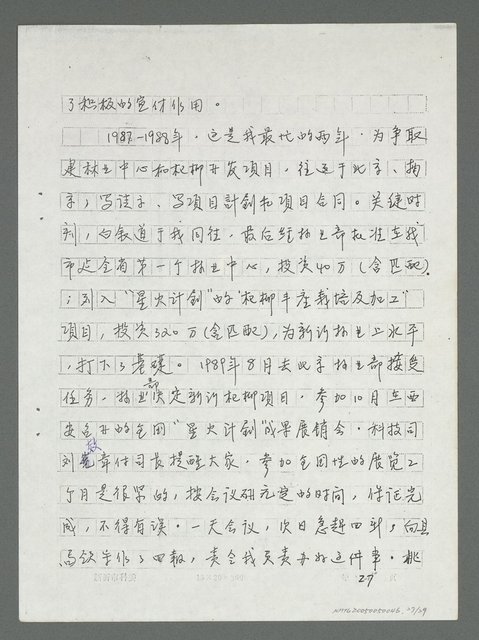 了积极的宣传作用。
1987-1988年，这是我最忙的两年，为争取
建林业中心和杞柳开发项目，往返于北京、南
京，写请示、写项目計划和项目合同。关键时
刻，向我道于我同往，最后经林业部批准在我
市建全省第一个林业中心，投资40万(含匹配)
；列入"星火计划"的"杞柳丰产栽培及加工"
项目，投资320万(含匹配)，为新沂林业上水平
，打下了基礎。1989年8月去北京林业部接受
任务，林业部决定新沂杞柳项目，参加10月在西
安召开的全国"星火计划"成果展销会，科技司
刘效章付司长提醒大家，参加全国性的展览工
个月是很紧的，按会议研究定的时间，保证完
成，不得有误。一天会议，次日急赶回新，向县
马钦 作了回報，责令我负责办好这件事。挑
27
15×20=300
NMTL20050050046 27/29